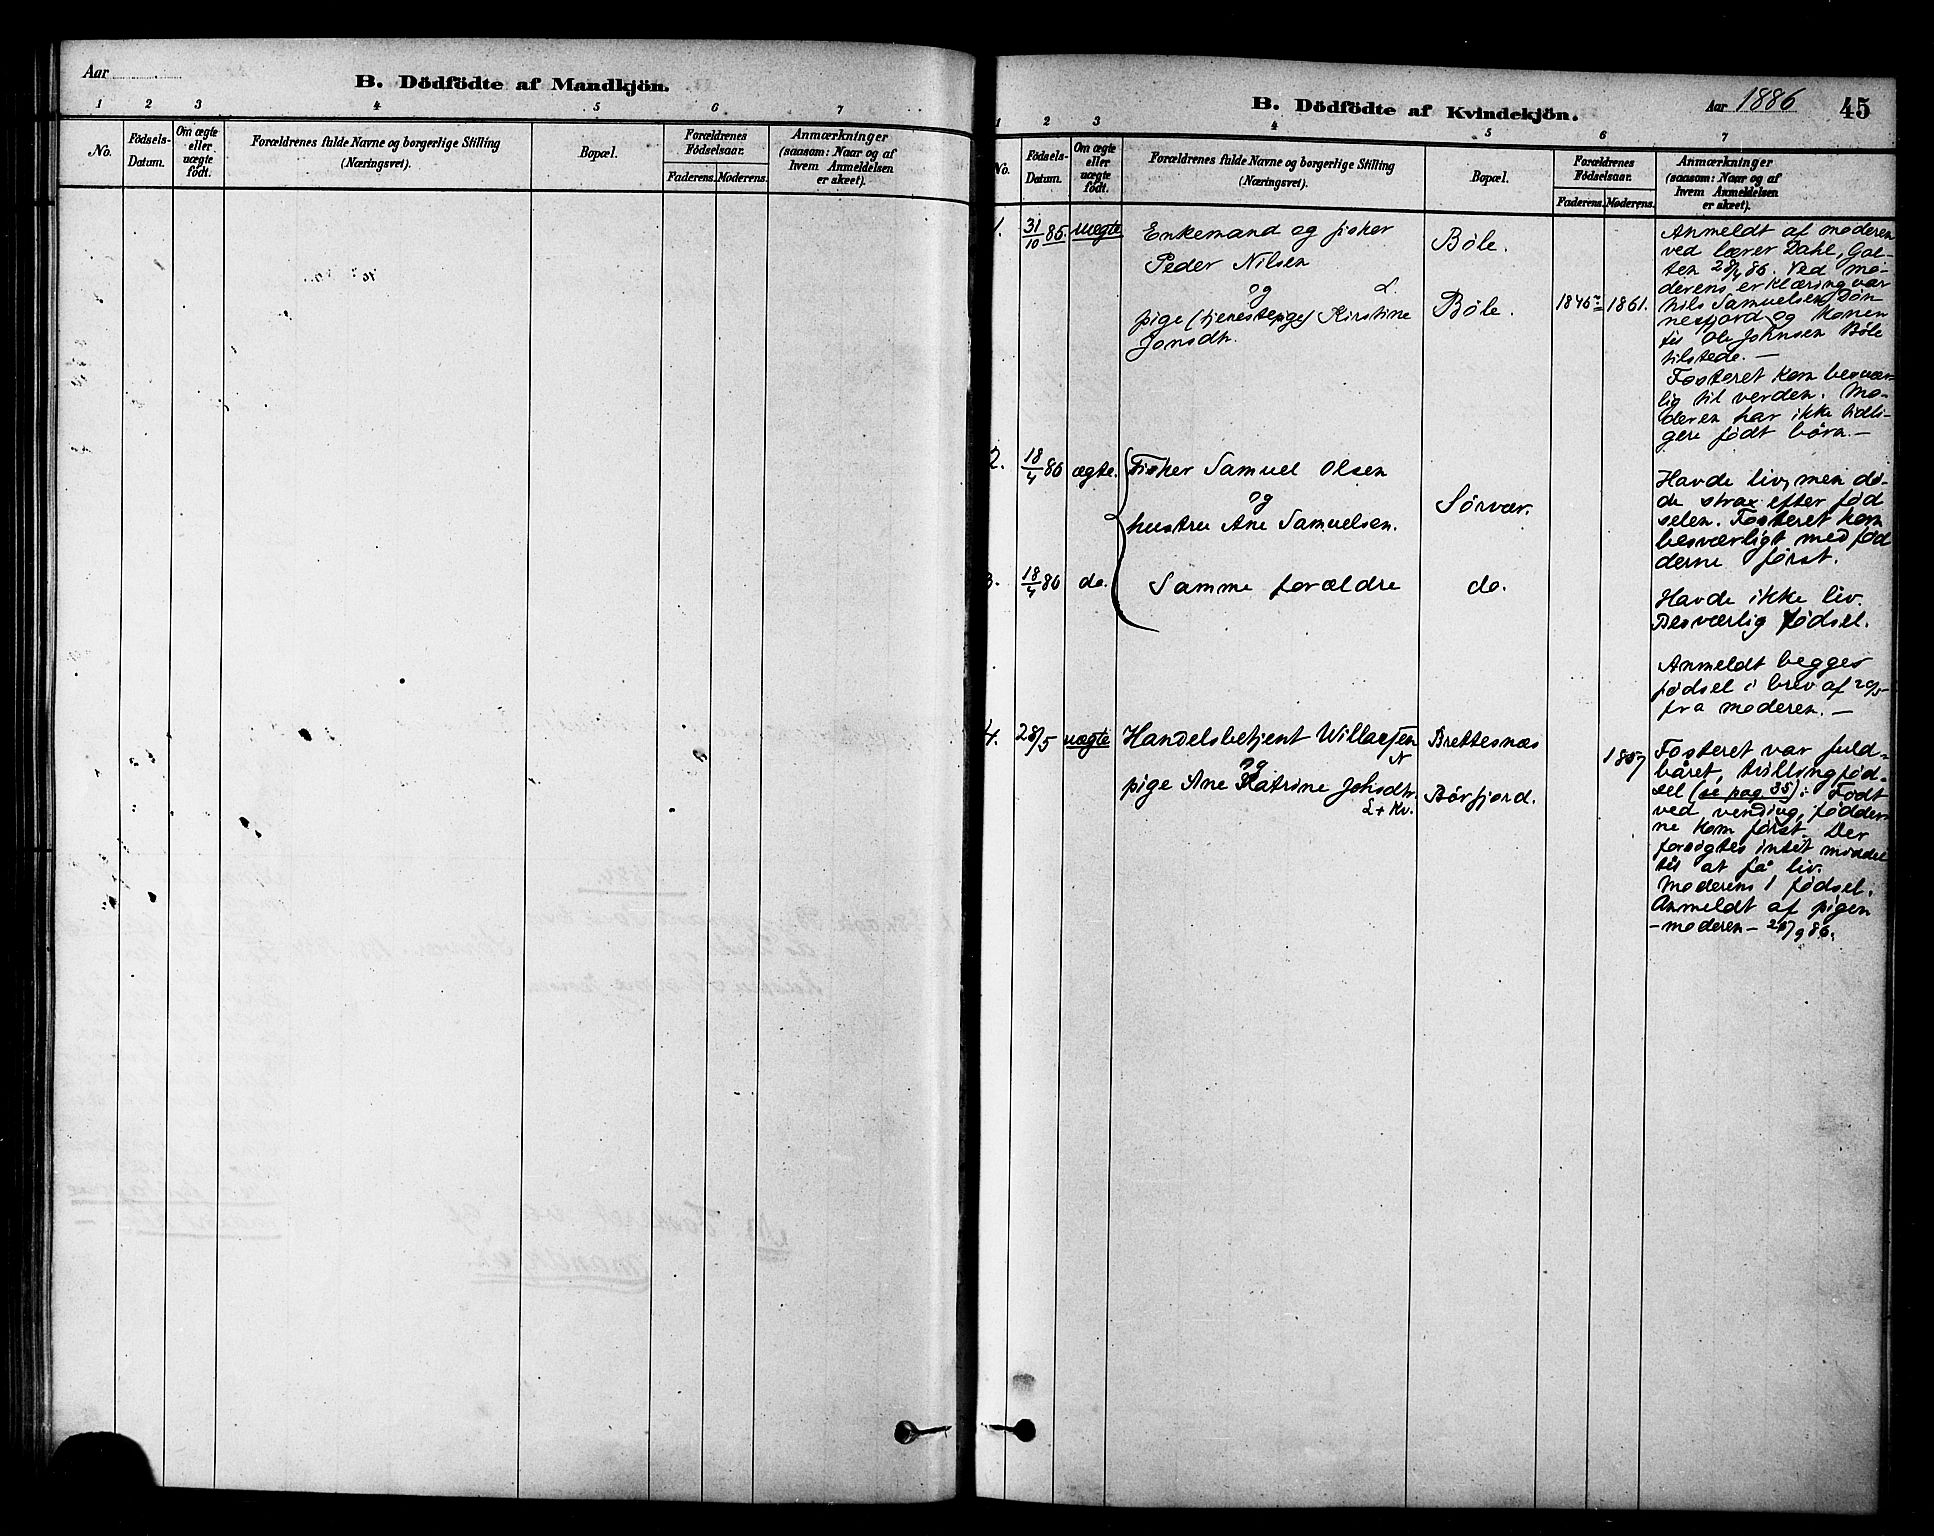 Aar
B. Dödfödte af Mandkjön.
1 2 3 4 5 6 7
No.
Födsels-
Datum.
Om ægte
eller
uægte
födt.
Forældrenes fulde Navne og borgerlige Stilling
(Næringsvei).
Bopæl.
Forældrenes
Födselsaar.
Faderens. Moderens.
Anmærkninger
(saasom: Naar og af
hvem Anmeldelsen
er skeet).
B. Dödfödte af Kvindekjön.
Aar 1886
45
1 2 3 4 5 6 7
No.
Födsels-
Datum.
Om ægte
eller
uægte
födt.
Forældrenes fulde Navne og borgerlige Stilling
(Næringsvei).
Bopæl.
Forældrenes
Födselsaar.
Faderens. Moderens.
Anmærkninger
(saasom: Naar og af
hvem Anmeldelsen
er skeet).
1. 31/10 85. uægte
Enkemand og fisker
Peder Nilsen
og L.
pige (tjenestepige) Kirstine
Jonsdtr.
Bøle.
Bøle.
1846 1861.
Anmeldt af moderen
ved lærer Dahl, Gal-
ten 28/4 86. Ved mo-
derens erklæring var
Nils Samuelsen Døn
nesfjord og konen
til Ole Johnsen Bøle
tilstede. —
Fosteret kom besvær
lig til verden. Mo-
deren har ikke tidli-
gere født børn. —
2. 18/4 86 ægte.
Fisker Samuel Olsen
og
hustru Ane Samuelsen.
Sørvær.
Havde liv, men dø-
de strax efter fød
selen. Fosteret kom
besværligt med fød
derne først.
3. 18/4 86 do.
Samme forældre
do.
Havde ikke liv.
Besværlig fødsel.
Anmeldt begges
fødsel i brev af
fra moderen. —
4. 28/5 uægte
Handelsbetjent Willassen
N
og
pige Ane Katrine Johsdtr.
L + Kv.
Brettesnæs
Børfjord.
1857
Fosteret var fuld-
båret, tvillingfød-
sel (se pag 35). Født
ved vending, fødder-
ne kom først. Der
forsøgtes intet middel
til at få liv.
Moderens 1 fødsel.
Anmeldt af pigen
— moderen — 28/9 86.